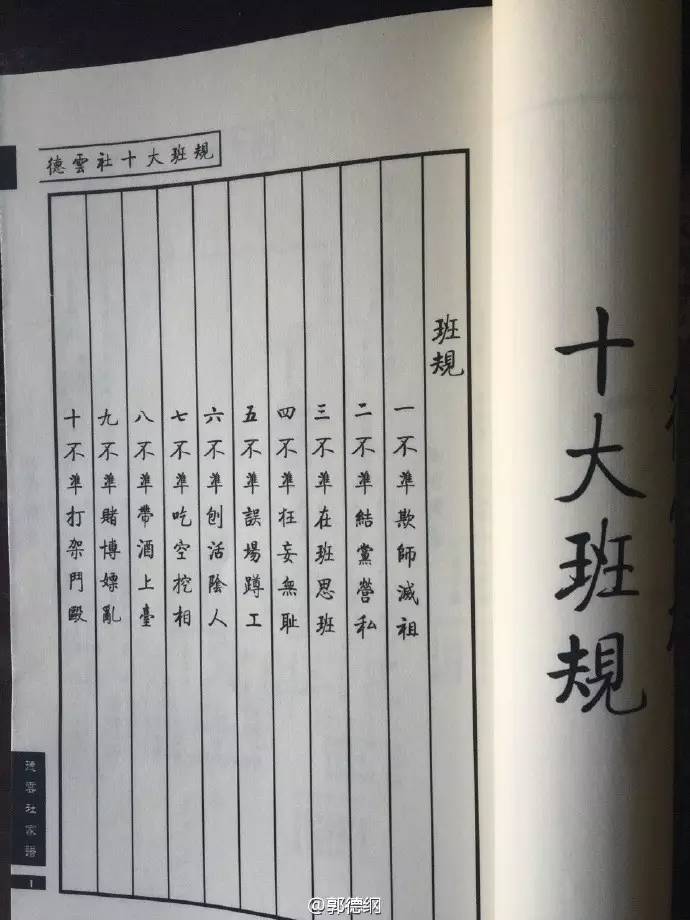 十大班規
德雲社十大班規
班規
一不準欺師滅祖
二不準結黨營私
三不準在班思班
四不準狂妄無恥
五不準誤場蹲工
六不準刨活陰人
七不準吃空挖相
八不準帶酒上臺
九不準賭博嫖亂
十不準打架鬥毆
德雲社家譜
1
@郭德纲